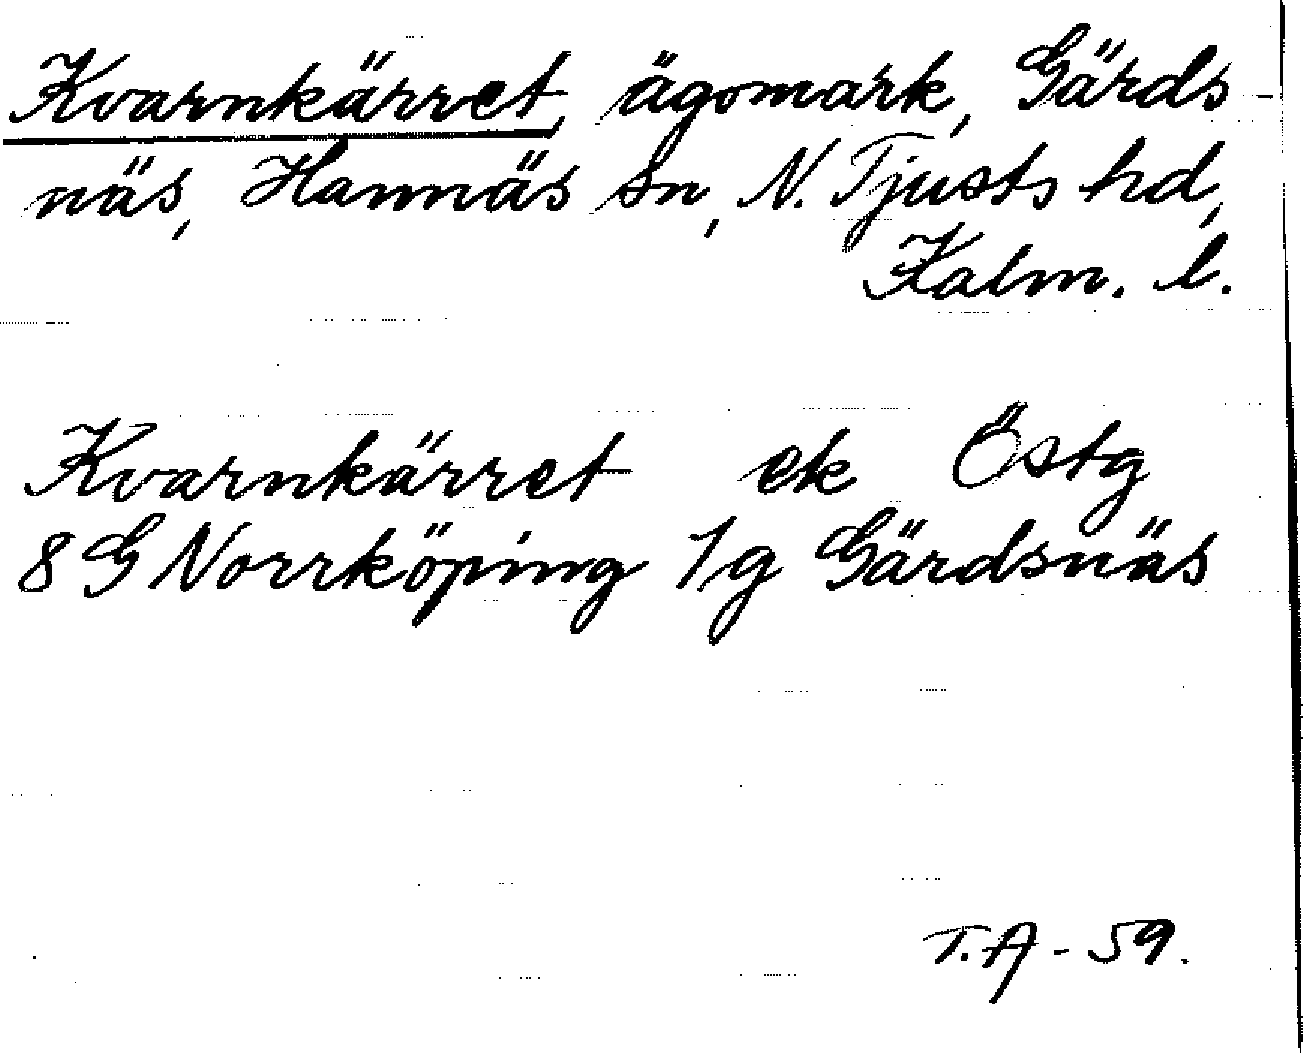 Kvarnkärret, ägomark, Gärds-
näs, Hannäs sn, N. Tjusts hd,
Kalm. l.
Kvarnkärret ek Östg
8 G Norrköping 1g Gärdsnäs
T.A - 59.